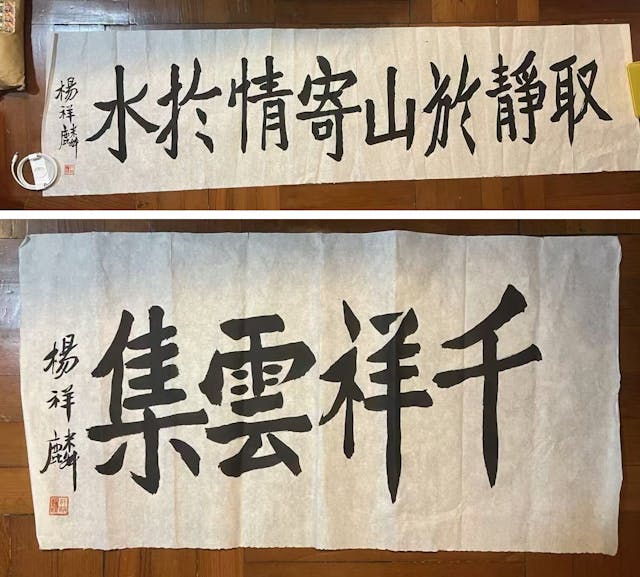 取靜於山寄情於水
楊祥麟
千祥雲集
楊祥麟